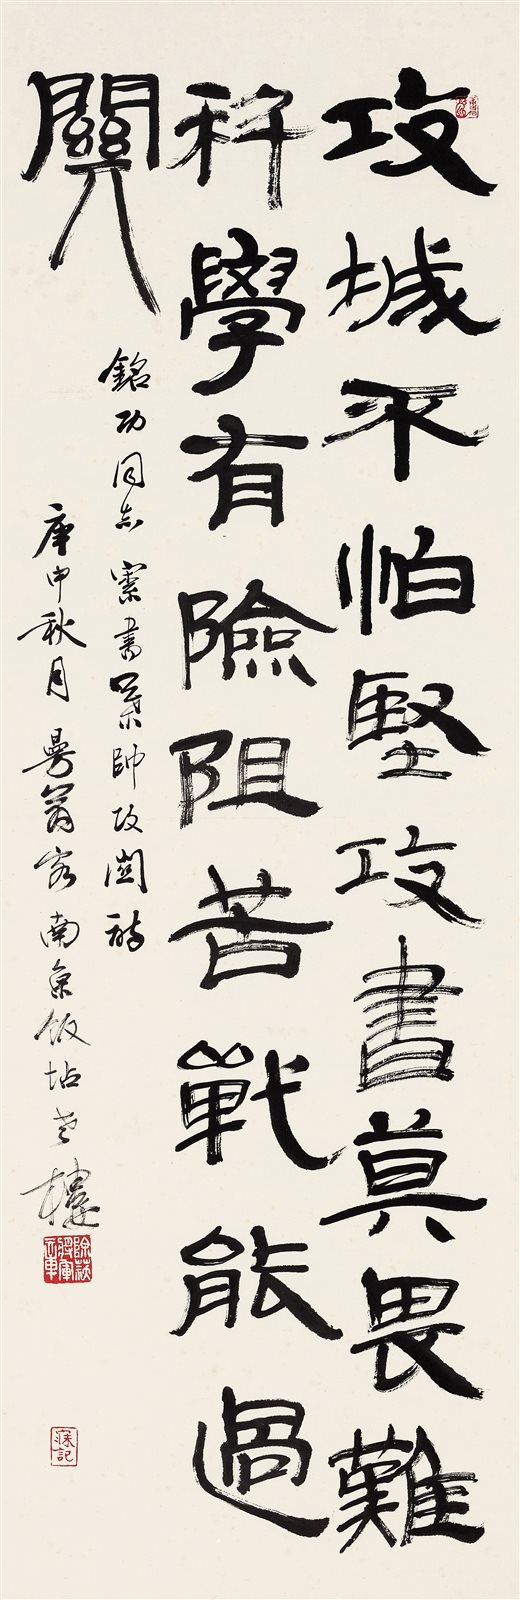 攻城不怕堅攻書莫畏難
科學有險阻苦戰能過
關
銘功同志索書葉帥攻關詩
庚申秋月曼翁客南京飯坫老樓